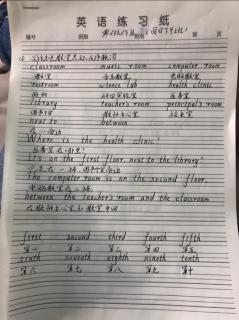 英语练习纸
编号 班别 姓名 第 页
classroom music room computer room
教室 音乐教室 电脑教室
restroom science lab health clinic
科学实验室 医务室
library teacher's room principal's room
图书室 教师办公室 校长室
next to between
在
Where is the health clinic?
医务室在哪里?
It's on the first floor, next to the library!
它是在一楼,图书室旁边
The computer room is on the second floor,
电脑教室在二楼,
between the teacher's room and the classroom
在教师办公室和教室中间
first second third fourth fifth
第一 第二 第三 第四 第五
sixth seventh eighth nineth tenth
第六 第七 第八 第九 第十